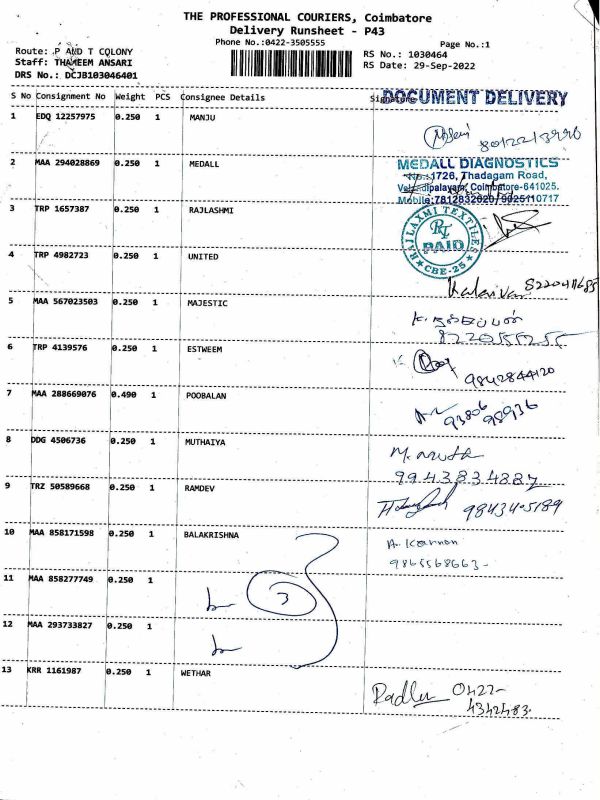 THE PROFESSIONAL COURIERS, Coimbatore
Delivery Runsheet - P43
Phone No.:0422-3505555
Page No.:1
Route: P AND T COLONY
RS No.: 1030464
Staff: THAMEEM ANSARI
RS Date: 29-Sep-2022
DRS No.: DCJB103046401
S No Consignment No Weight PCS Consignee Details Signature
DOCUMENT DELIVERY
1 EDQ 12257975 0.250 1 MANJU
2 MAA 294028869 0.250 1 MEDALL
MEDALL DIAGNOSTICS
1726, Thadagam Road,
Coimbatore-641025.
Mobile:7812832020/9025110717
3 TRP 1657387 0.250 1 RAJLASHMI
RAJLAXMI TEXTILES
RT
PAID
CBE-25
4 TRP 4982723 0.250 1 UNITED
Kalaivan 8220411685
5 MAA 567023503 0.250 1 MAJESTIC
8220555255
6 TRP 4139576 0.250 1 ESTWEEM
9842844120
7 MAA 288669076 0.490 1 POOBALAN
93806 98936
8 DDG 4506736 0.250 1 MUTHAIYA
99438 34887
9 TRZ 50589668 0.250 1 RAMDEV
9843405189
10 MAA 858171598 0.250 1 BALAKRISHNA
A. Kannan
9865568663-
11 MAA 858277749 0.250 1
3
12 MAA 293733827 0.250 1
13 KRR 1161987 0.250 1 WETHAR
0422-
4342483.